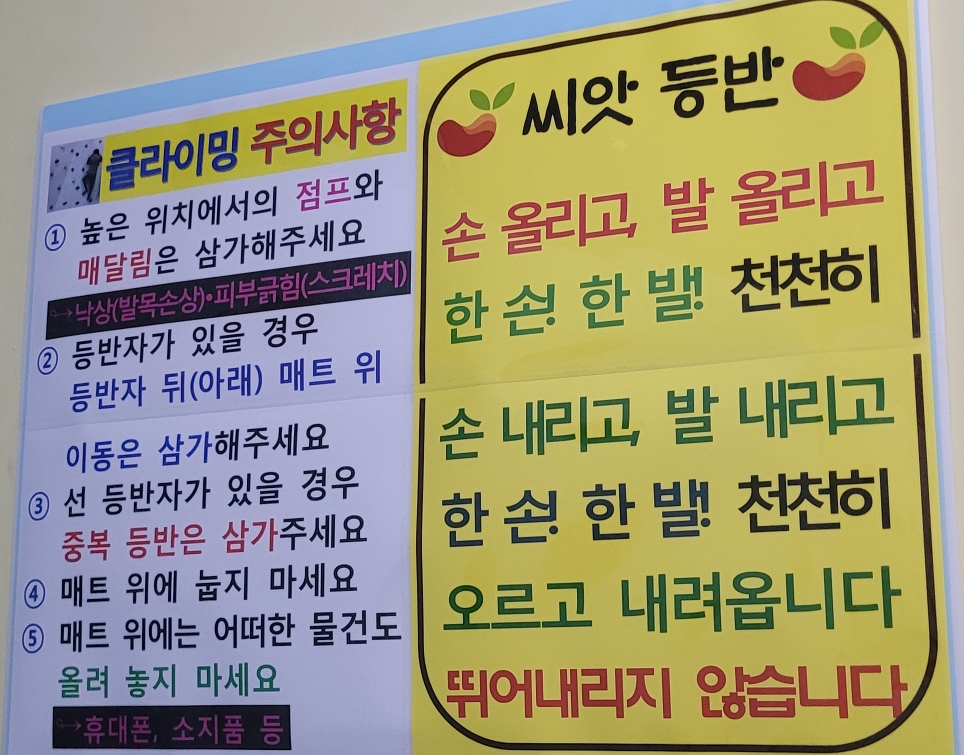 클라이밍 주의사항
① 높은 위치에서의 점프와
매달림은 삼가해주세요
→낙상(발목손상)•피부긁힘(스크레치)
② 등반자가 있을 경우
등반자 뒤(아래) 매트 위
이동은 삼가해주세요
③ 선 등반자가 있을 경우
중복 등반은 삼가주세요
④ 매트 위에 눕지 마세요
⑤ 매트 위에는 어떠한 물건도
올려 놓지 마세요
→휴대폰, 소지품 등
씨앗 등반
손 올리고, 발 올리고
한 손! 한 발! 천천히
손 내리고, 발 내리고
한 손! 한 발! 천천히
오르고 내려옵니다
뛰어내리지 않습니다